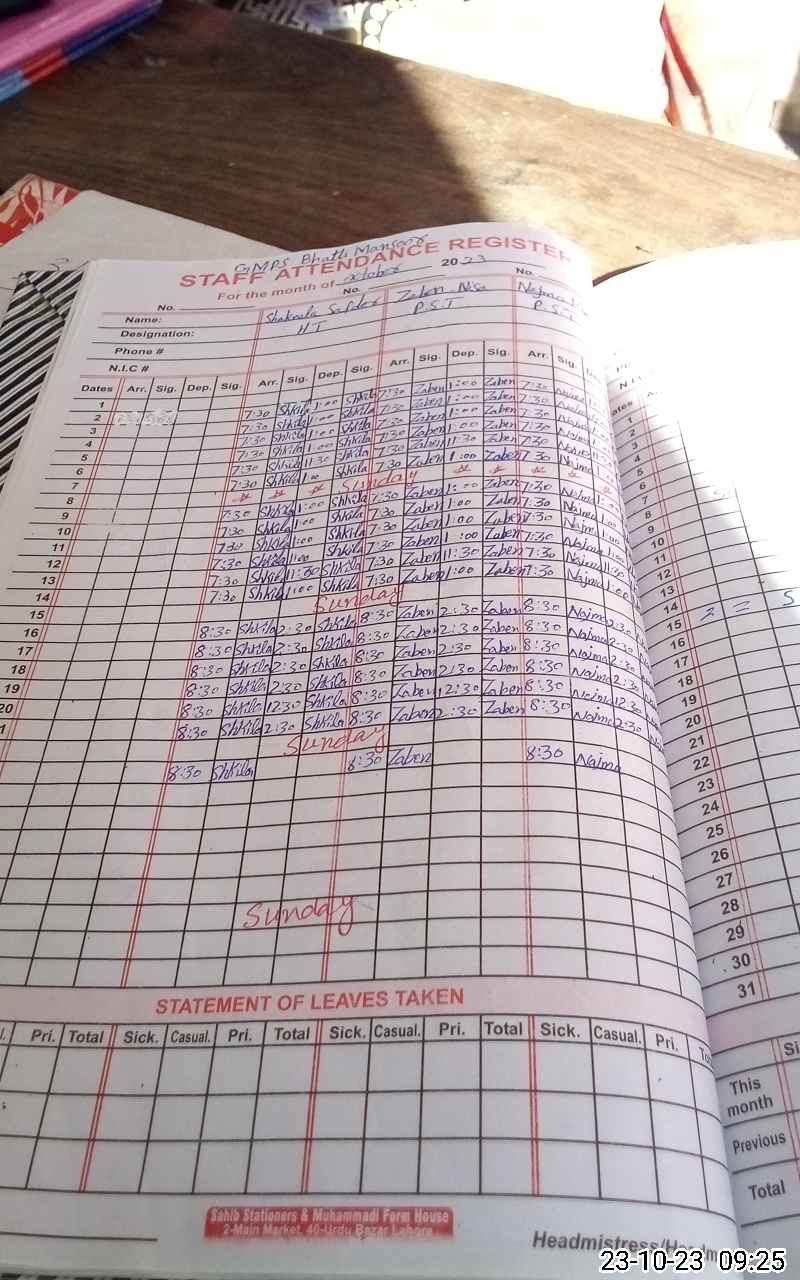 GMPS Bhatti Mansoor
STAFF ATTENDANCE REGISTER
For the month of october 2023
No. No. No.
Name: Shakeela Safdar Zaben Nisa Najma
Designation: HT P.S.T P.S.T
Phone #
N.I.C #
Dates Arr. Sig. Dep. Sig. Arr. Sig. Dep. Sig. Arr. Sig. Dep. Sig. Arr. Sig.
1 Sunday
2 7:30 Shkila 1:00 Shkila 7:30 Zaben 1:00 Zaben 7:30 Najma
3 7:30 Shkila 1:00 Shkila 7:30 Zaben 1:00 Zaben 7:30 Najma
4 7:30 Shkila 1:00 Shkila 7:30 Zaben 1:00 Zaben 7:30 Najma
5 7:30 Shkila 1:00 Shkila 7:30 Zaben 1:00 Zaben 7:30 Najma
6 7:30 Shkila 11:30 Shkila 7:30 Zaben 11:30 Zaben 7:30 Najma
7 7:30 Shkila 1:00 Shkila 7:30 Zaben 1:00 Zaben 7:30 Najma
8 Sunday
9 7:30 Shkila 1:00 Shkila 7:30 Zaben 1:00 Zaben 7:30 Najma
10 7:30 Shkila 1:00 Shkila 7:30 Zaben 1:00 Zaben 7:30 Najma
11 7:30 Shkila 1:00 Shkila 7:30 Zaben 1:00 Zaben 7:30 Najma
12 7:30 Shkila 1:00 Shkila 7:30 Zaben 1:00 Zaben 7:30 Najma
13 7:30 Shkila 11:30 Shkila 7:30 Zaben 11:30 Zaben 7:30 Najma 11:30
14 7:30 Shkila 1:00 Shkila 7:30 Zaben 1:00 Zaben 7:30 Najma 1:00
15 Sunday
16 8:30 Shkila 2:30 Shkila 8:30 Zaben 2:30 Zaben 8:30 Najma 2:30
17 8:30 Shkila 2:30 Shkila 8:30 Zaben 2:30 Zaben 8:30 Najma 2:30
18 8:30 Shkila 2:30 Shkila 8:30 Zaben 2:30 Zaben 8:30 Najma 2:30
19 8:30 Shkila 2:30 Shkila 8:30 Zaben 2:30 Zaben 8:30 Najma 2:30
20 8:30 Shkila 12:30 Shkila 8:30 Zaben 12:30 Zaben 8:30 Najma 12:30
8:30 Shkila 2:30 Shkila 8:30 Zaben 2:30 Zaben 8:30 Najma 2:30
Sunday
8:30 Shkila 8:30 Zaben 8:30 Najma
Sunday
STATEMENT OF LEAVES TAKEN
Pri. Total Sick. Casual. Pri. Total Sick. Casual. Pri. Total Sick. Casual. Pri.
Sahib Stationers & Muhammadi Form House
2-Main Market, 40-Urdu Bazar Lahore
Headmistress/
1
2
3
4
5
6
7
8
9
10
11
12
13
14
15
16
17
18
19
20
21
22
23
24
25
26
27
28
29
30
31
This month
Previous
Total
23-10-23 09:25